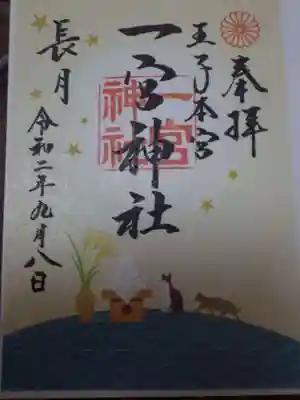 奉拝
王子本宮
一宮神社
一宮
神社
長月
令和二年九月八日